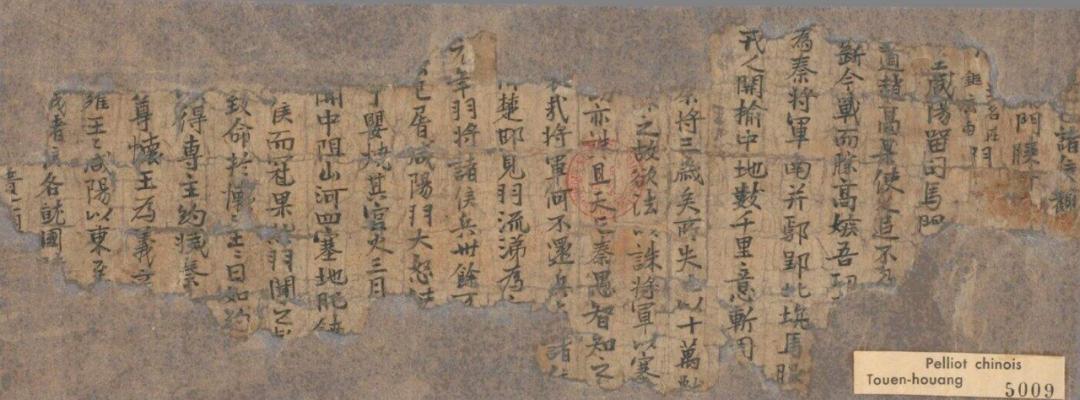 諸侯
門膝
咸陽留司馬門
道趙高果使人追不
今戰而勝高嫉吾功
為秦將軍南并鄢郢北坑馬服
戎人開榆中地數千里竟斬陽
秦將三歲矣所失以十萬數
之故欲法以誅將軍以塞
亦誅且天亡秦愚智知之
哉將軍何不還兵諸
楚耶見羽流涕為
元年羽將諸侯兵卅餘万
已屠咸陽羽大怒
嬰燒其宮火三月
關中阻山河四塞地肥饒
侯而冠果羽聞之
致命於懷王=曰如約
得專主約
尊懷王為義
王咸陽以東
各就國
Pelliot chinois
Touen-houang 5009